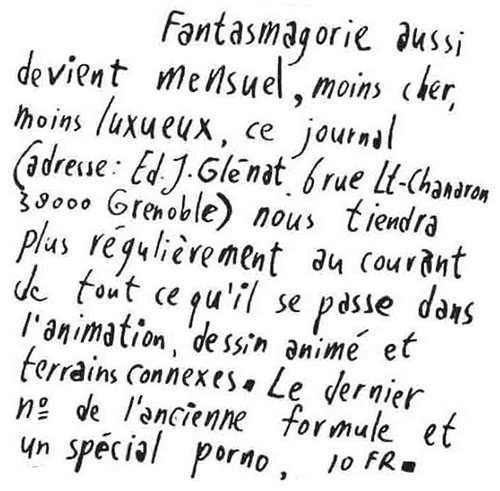 Fantasmagorie aussi
devient mensuel, moins cher,
moins luxueux, ce journal
(adresse: Ed. J. Glénat 6 rue Lt-Chanaron
38000 Grenoble) nous tiendra
plus régulièrement au courant
de tout ce qu'il se passe dans
l'animation, dessin animé et
terrains connexes. Le dernier
nº de l'ancienne formule et
un spécial porno, 10 FR.